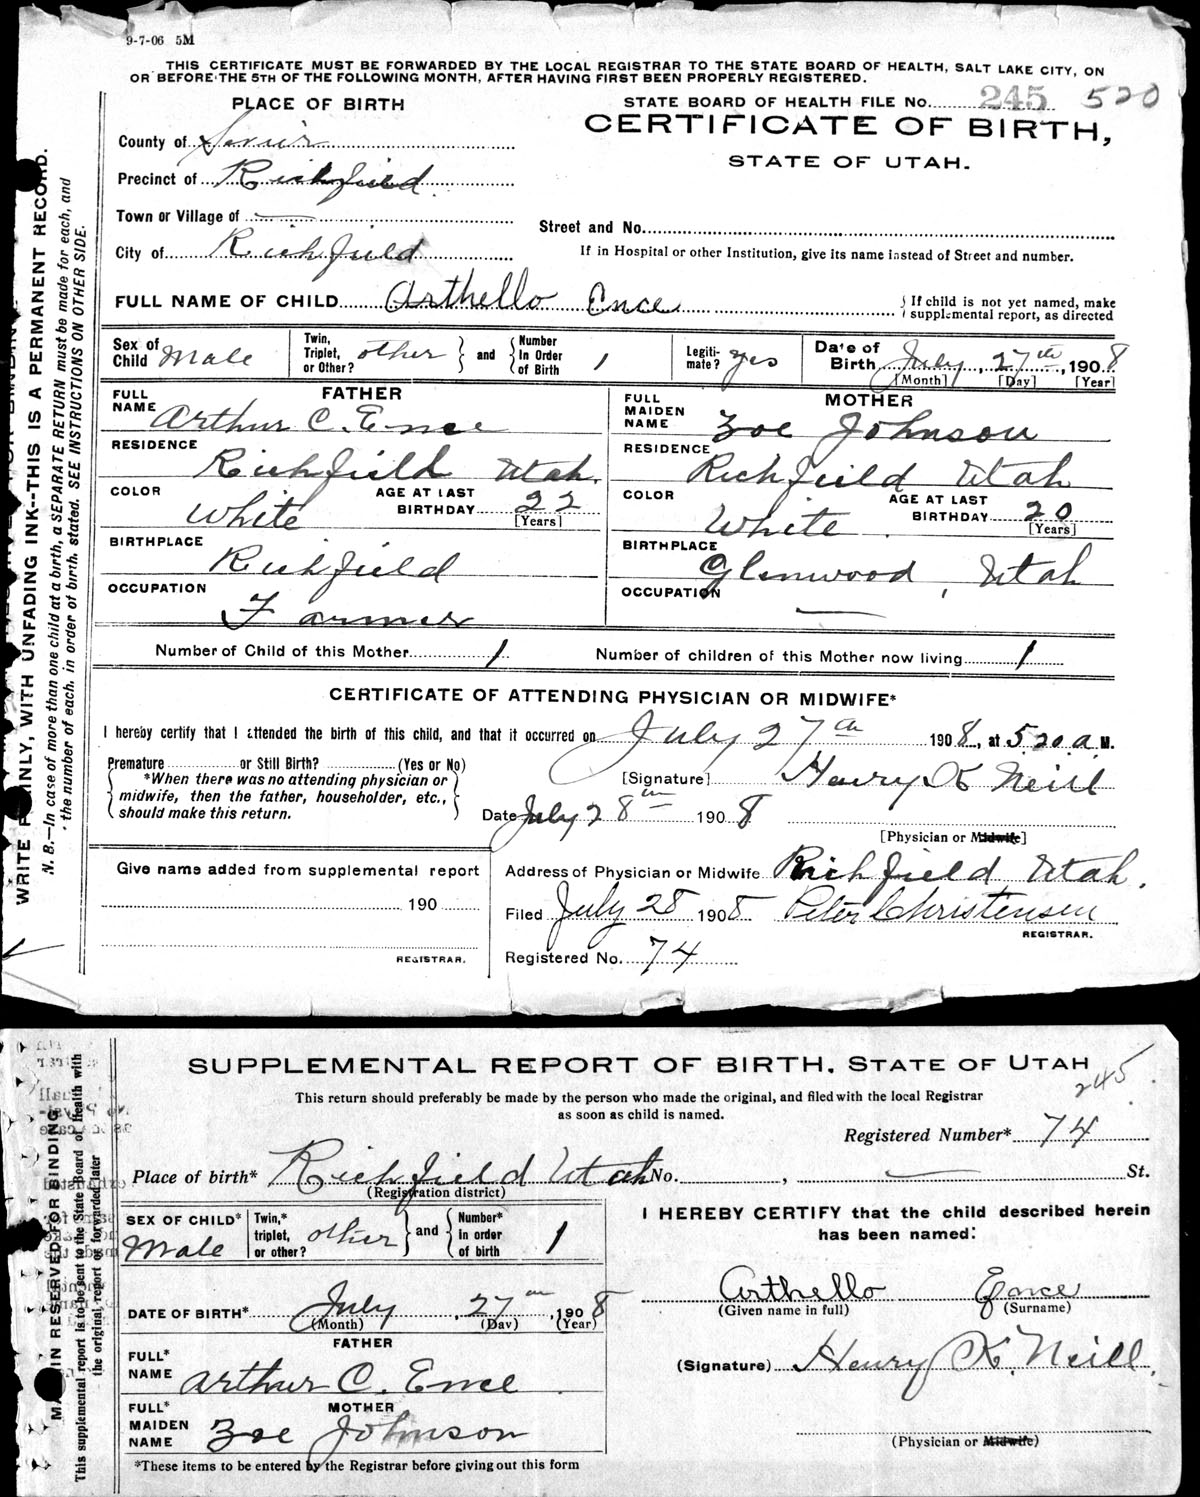 9-7-06 5M
THIS CERTIFICATE MUST BE FORWARDED BY THE LOCAL REGISTRAR TO THE STATE BOARD OF HEALTH, SALT LAKE CITY, ON
OR BEFORE THE 5TH OF THE FOLLOWING MONTH, AFTER HAVING FIRST BEEN PROPERLY REGISTERED.
PLACE OF BIRTH
STATE BOARD OF HEALTH FILE No. 245 520
CERTIFICATE OF BIRTH,
STATE OF UTAH.
County of Sevier
Precinct of Richfield
Town or Village of —
Street and No.
City of Richfield
If in Hospital or other Institution, give its name instead of Street and number.
FULL NAME OF CHILD Arthello Ence
{ If child is not yet named, make
supplemental report, as directed
Sex of Child Male
Twin, Triplet, or Other? other
and
Number In Order of Birth 1
Legiti- mate? yes
Date of Birth July, 27th, 1908
[Month] [Day] [Year]
FATHER
FULL NAME Arthur C. Ence
RESIDENCE Richfield Utah.
COLOR White
AGE AT LAST BIRTHDAY 22
[Years]
BIRTHPLACE Richfield
OCCUPATION Farmer
MOTHER
FULL MAIDEN NAME Zoe Johnson
RESIDENCE Richfield Utah
COLOR White
AGE AT LAST BIRTHDAY 20
[Years]
BIRTHPLACE Glenwood, Utah
OCCUPATION —
Number of Child of this Mother 1
Number of children of this Mother now living 1
CERTIFICATE OF ATTENDING PHYSICIAN OR MIDWIFE*
I hereby certify that I attended the birth of this child, and that it occurred on July 27th 1908, at 5.20 a. M.
Premature or Still Birth? (Yes or No)
*When there was no attending physician or
midwife, then the father, householder, etc.,
should make this return.
[Signature] Henry K Neill
Date July 28th 1908
[Physician or Midwife]
Give name added from supplemental report
190
REGISTRAR.
Address of Physician or Midwife Richfield Utah.
Filed July 28 1908 Peter Christensen
REGISTRAR.
Registered No. 74
WRITE PLAINLY, WITH UNFADING INK--THIS IS A PERMANENT RECORD.
N. B.—In case of more than one child at a birth, a SEPARATE RETURN must be made for each, and
the number of each, in order of birth, stated. SEE INSTRUCTIONS ON OTHER SIDE.
SUPPLEMENTAL REPORT OF BIRTH. STATE OF UTAH
245
This return should preferably be made by the person who made the original, and filed with the local Registrar
as soon as child is named.
Registered Number* 74
Place of birth* Richfield Utah No. , — St.
(Registration district)
SEX OF CHILD* Male
Twin,* triplet, or other? other
and
Number* in order of birth 1
DATE OF BIRTH* July, 27th, 1908
(Month) (Day) (Year)
FATHER
FULL* NAME Arthur C. Ence
MOTHER
FULL* MAIDEN NAME Zoe Johnson
*These items to be entered by the Registrar before giving out this form
I HEREBY CERTIFY that the child described herein
has been named:
Arthello Ence
(Given name in full) (Surname)
(Signature) Henry K. Neill.
(Physician or Midwife)
MARGIN RESERVED FOR BINDING
This supplemental report is to be sent to the State Board of Health with
the original report or forwarded later